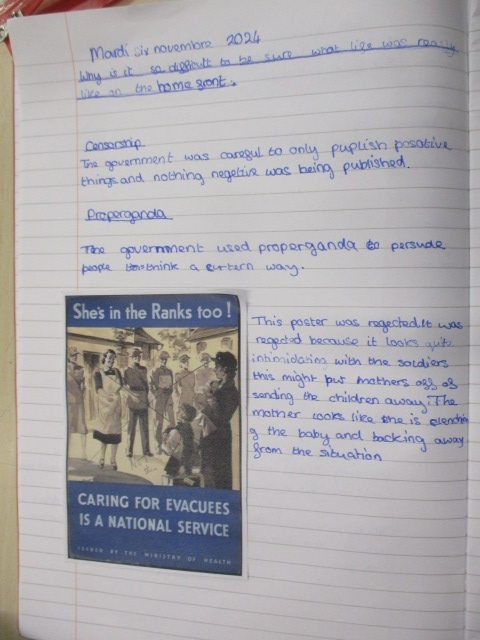 Mardi six novembre 2024
Why is it so difficult to be sure what life was really
like on the home front.
Censorship
The government was careful to only puplish posative
things and nothing negetive was being published.
Properganda
The government used properganda to persude
people to think a certern way.
She's in the Ranks too!
CARING FOR EVACUEES
IS A NATIONAL SERVICE
ISSUED BY THE MINISTRY OF HEALTH
This poster was regected. It was
regected because it looks quite
intimidating with the soldiers
this might put mothers off of
sending the children away. The
mother looks like she is clenchin
g the baby and backing away
from the situation